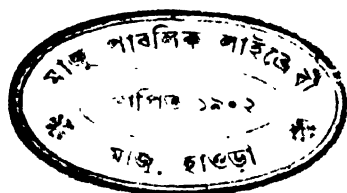 মাজু পাবলিক লাইব্রেরী
স্থাপিত ১৯০২
মাজু. হাওড়া